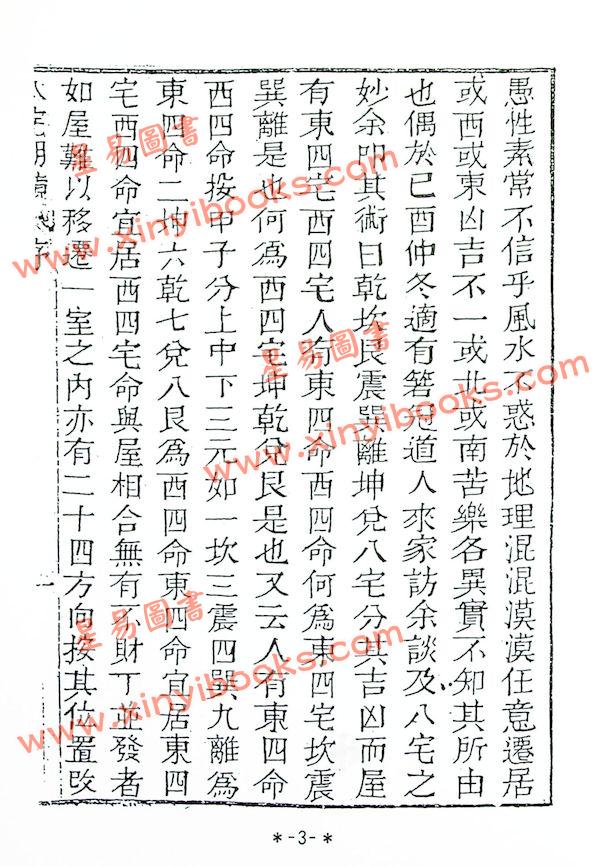 愚性素常不信乎風水不惑於地理混混漠漠任意遷居
或西或東凶吉不一或北或南苦樂各異實不知其所由
也偶於己酉仲冬適有箬冠道人來家訪余談及八宅之
妙余叩其術曰乾坎艮震巽離坤兌八宅分其吉凶而屋
有東四宅西四宅人有東四命西四命何爲東四宅坎震
巽離是也何爲西四宅坤乾兌艮是也又云人有東四命
西四命按甲子分上中下三元如一坎三震四巽九離爲
東四命二坤六乾七兌八艮爲西四命東四命宜居東四
宅西四命宜居西四宅命與屋相合無有不財丁並發者
如屋難以移遷一室之內亦有二十四方向按其位置改
序
一
*-3-*
星易圖書
www.xinyibooks.com
星易圖書
www.xinyibooks.com
星易圖書
www.xinyibooks.com